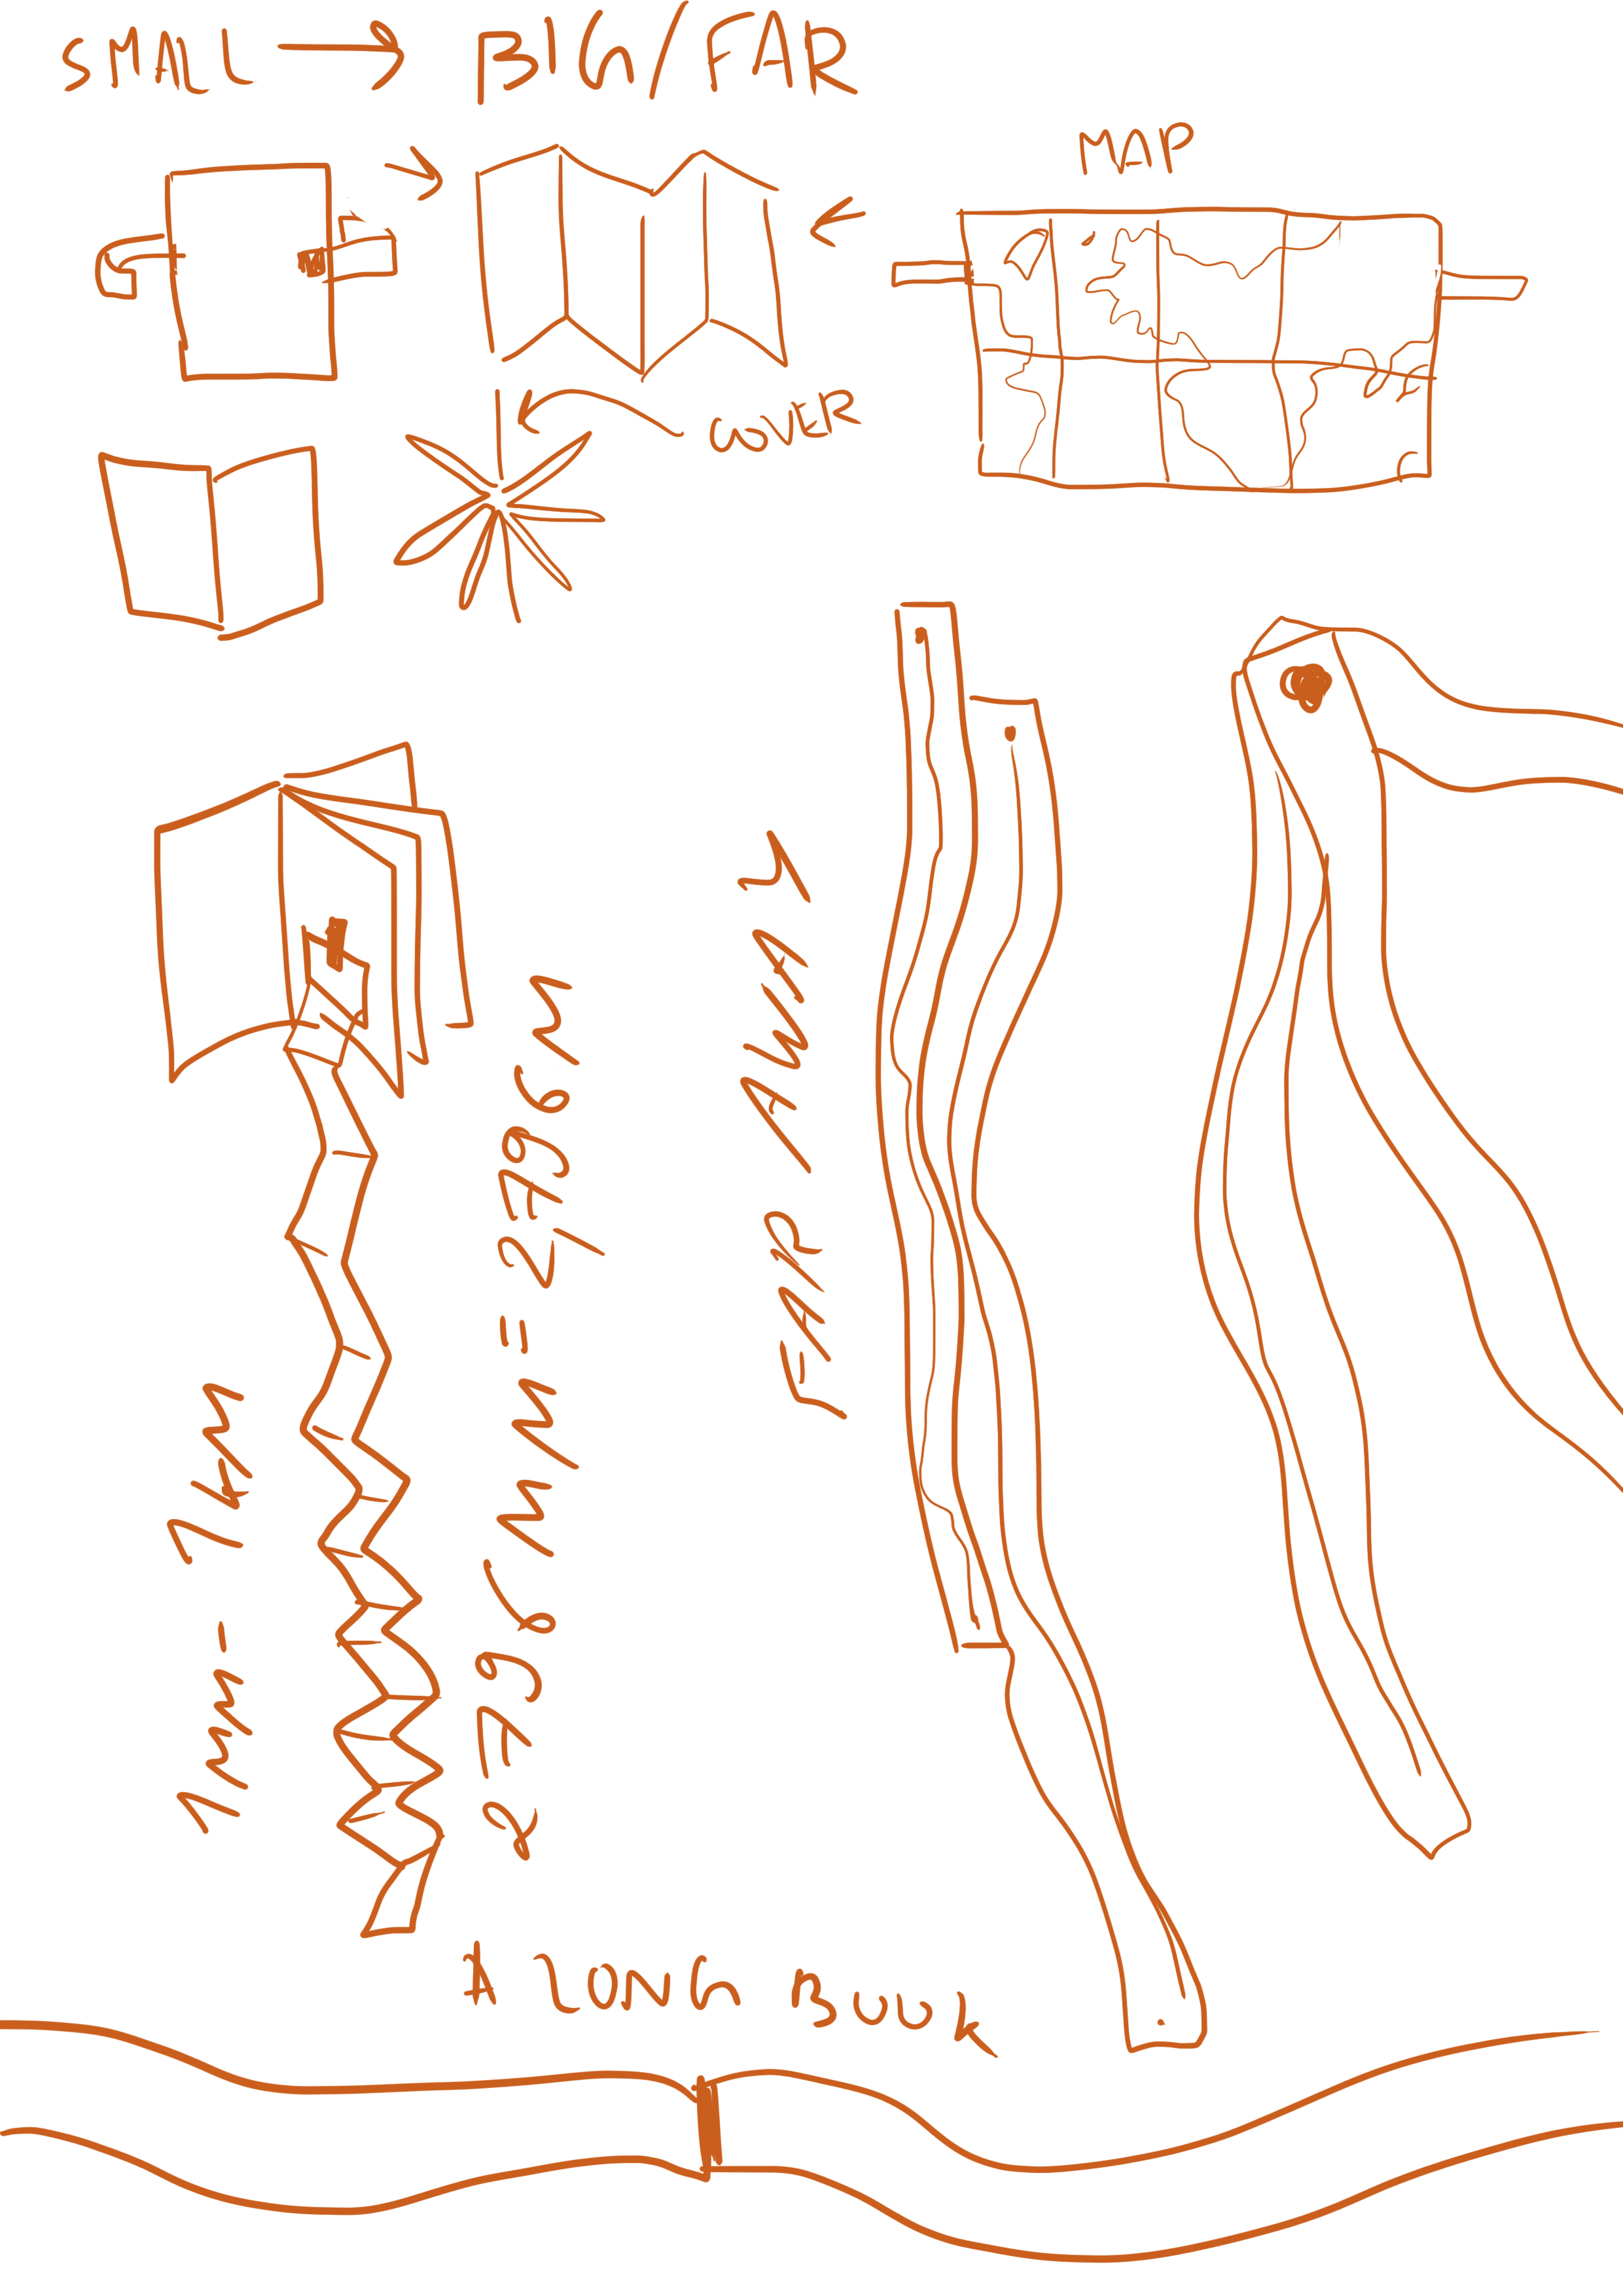 SMALL → BIG/FAR
MAP
COVER
1mm - 1km
2796MM = 2,796M
FAR AWAY
A LONG BOOK